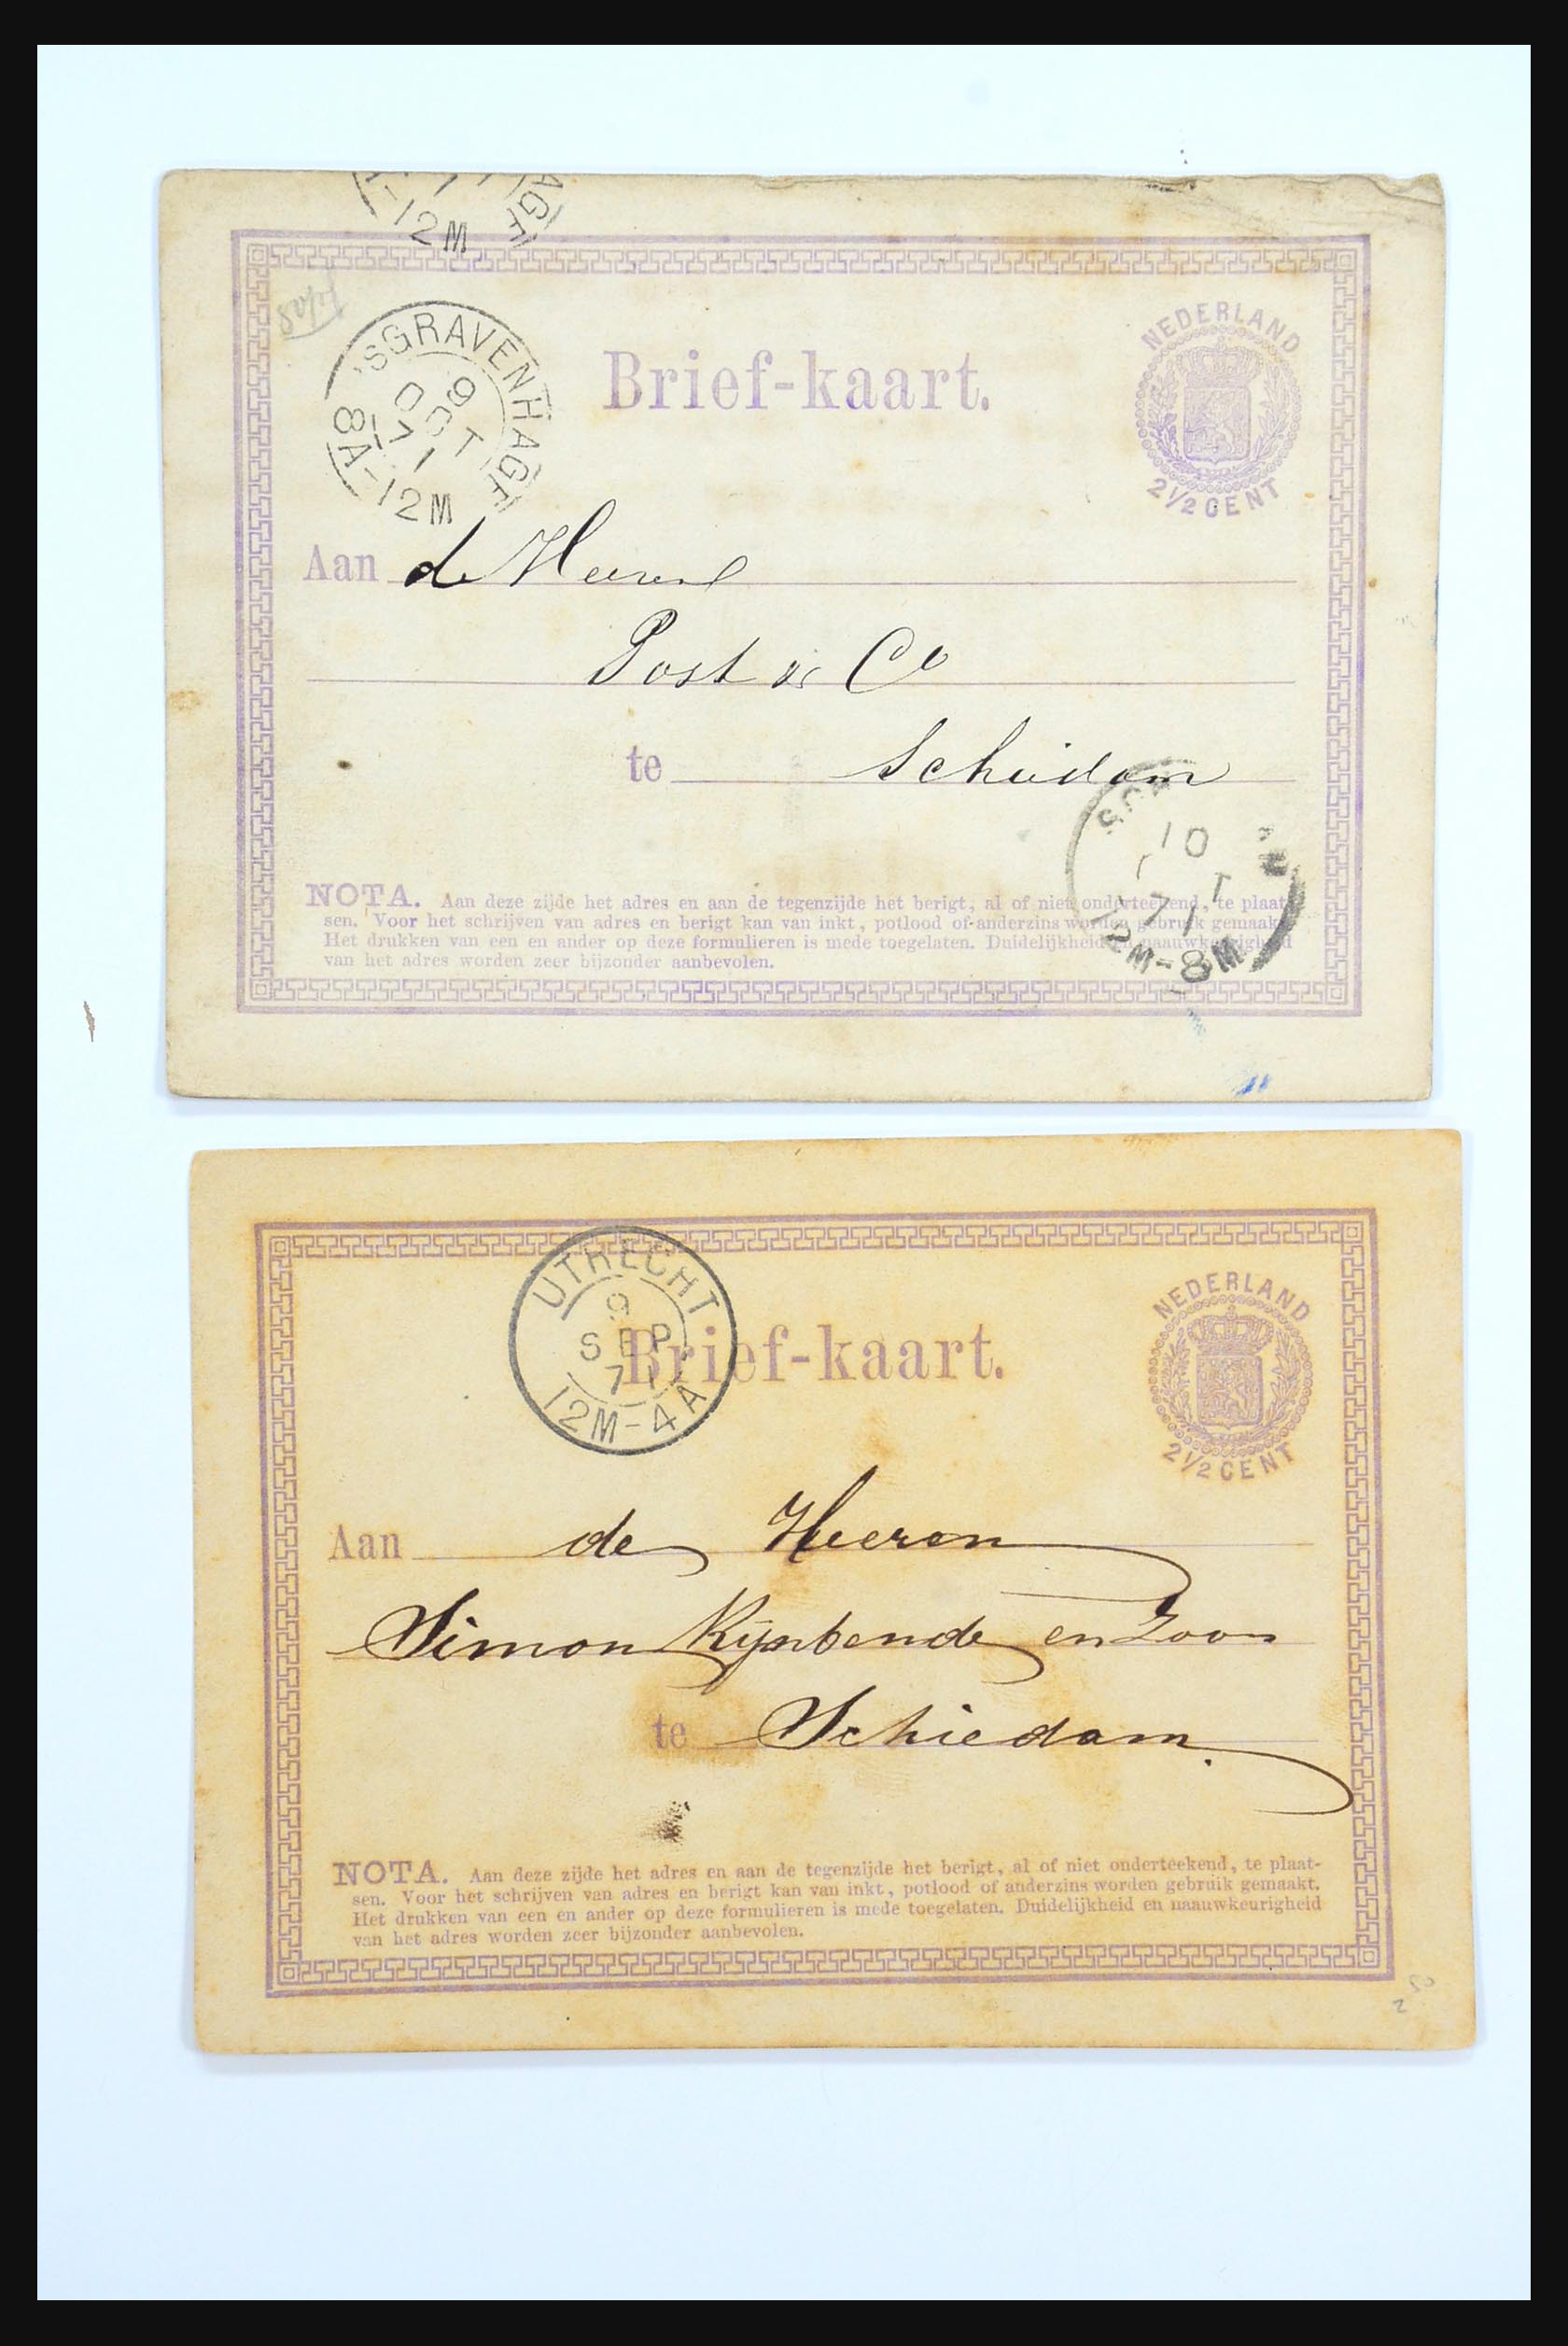 AGE
1
-12M
'SGRAVENHAGE
9
OCT
71
8A-12M
Brief-kaart.
NEDERLAND
2½ CENT
Aan de Heeren
Post & Co
te Schiedam
10
71
12M-8M
NOTA. Aan deze zijde het adres en aan de tegenzijde het berigt, al of niet onderteekend, te plaat-
sen. Voor het schrijven van adres en berigt kan van inkt, potlood of anderzins worden gebruik gemaakt.
Het drukken van een en ander op deze formulieren is mede toegelaten. Duidelijkheid en naauwkeurigheid
van het adres worden zeer bijzonder aanbevolen.
UTRECHT
9
SEP
71
12M-4A
Brief-kaart.
NEDERLAND
2½ CENT
Aan de Heeren
Simon Rijnbende en Zoon
te Schiedam.
NOTA. Aan deze zijde het adres en aan de tegenzijde het berigt, al of niet onderteekend, te plaat-
sen. Voor het schrijven van adres en berigt kan van inkt, potlood of anderzins worden gebruik gemaakt.
Het drukken van een en ander op deze formulieren is mede toegelaten. Duidelijkheid en naauwkeurigheid
van het adres worden zeer bijzonder aanbevolen.
2 50